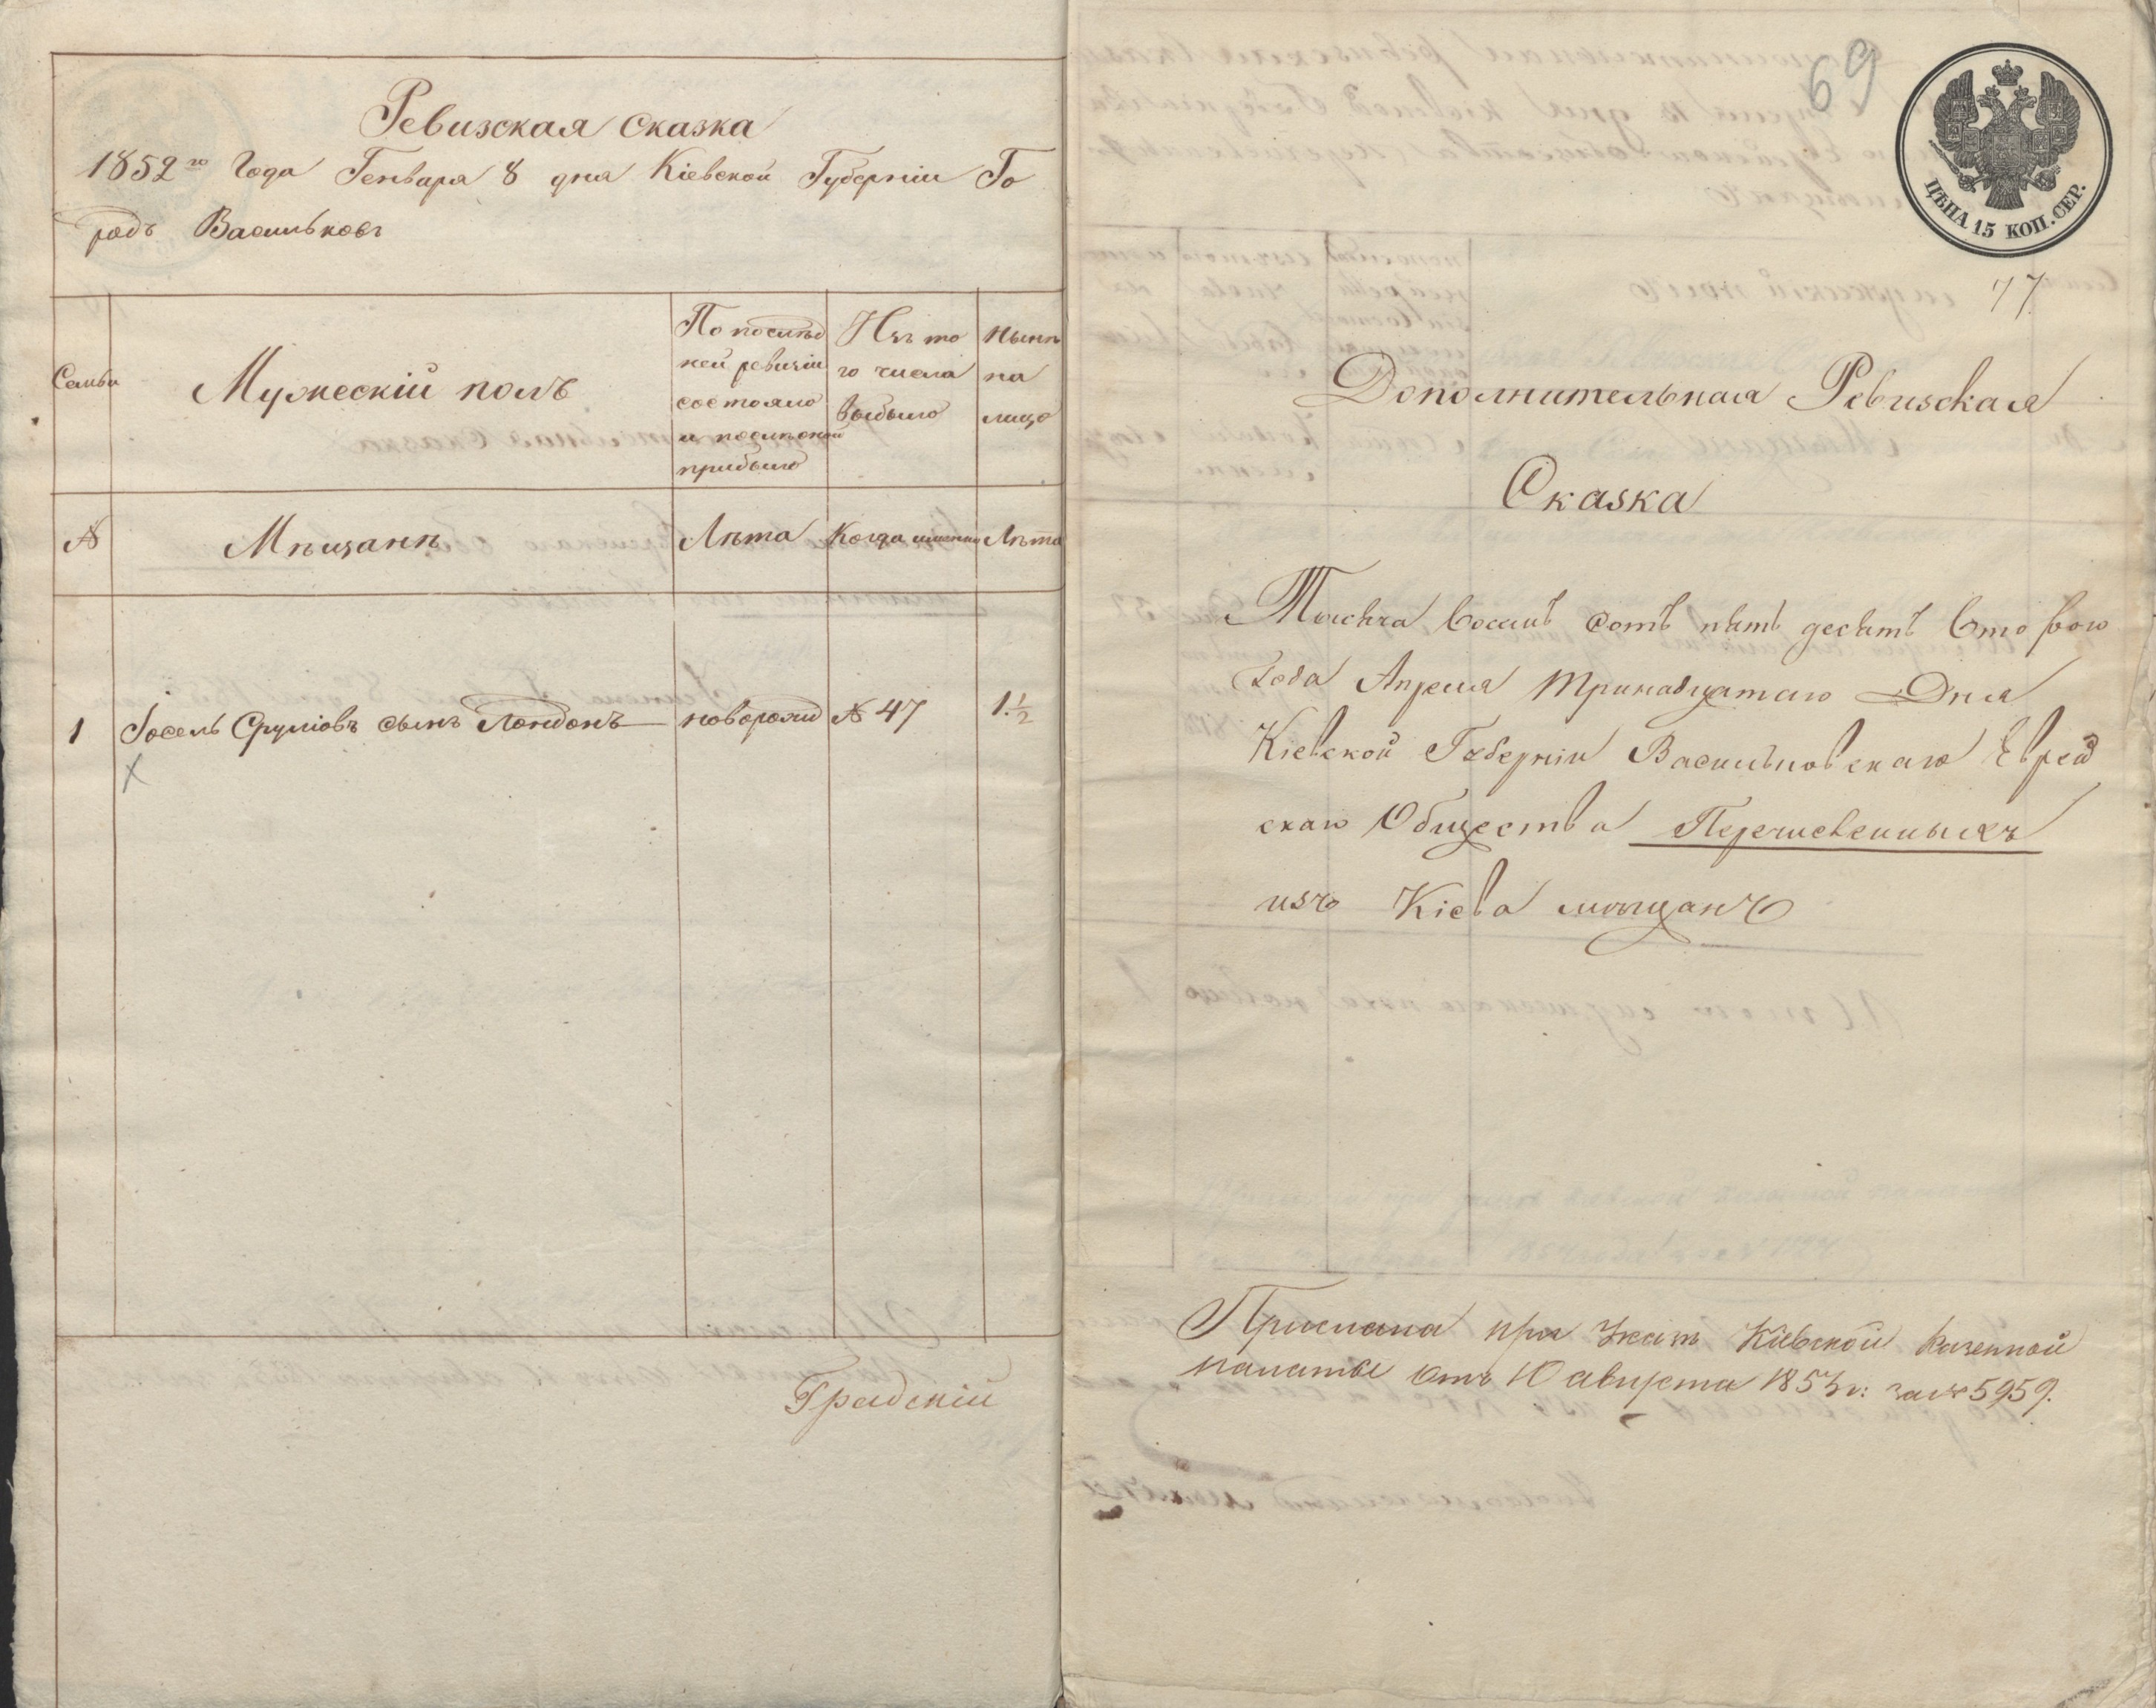 Ревизская сказка
1852го Года Генваря 8 дня Кіевской Губерніи Го
родъ Васильковъ
Семьи
Мужескій полъ
По послѣд
ней ревизіи
состояло
и послѣ оной
прибыло
Изъ то
го числа
выбыло
Нынѣ
на
лицо
№
Мѣщанѣ
Лѣта
Когда именно
Лѣта
1
Іосель Сруліовъ сынъ Лондонъ
новорожд
№ 47
1 1/2
Градскій
69
ЦѢНА 15 КОП. СЕР.
77
Дополнительная Ревизская
Сказка
Тысяча восемь сотъ пять десятъ втораго
Года Апреля Тринадцатаго Дня
Кіевской Губерніи Васильковскаго Еврей
скаго Общества Перечисленныхъ
изъ Кіева мѣщанъ
Прислана при Указѣ Кіевской Казенной
палаты отъ 10 августа 1853 г: за № 5959.